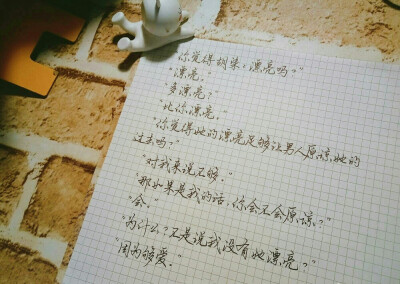 "你觉得胡染,漂亮吗?"
"漂亮。"
"多漂亮?"
"比你漂亮。"
"你觉得她的漂亮足够让男人原谅她的
过去吗?"
"对我来说不够。"
"那如果是我的话,你会不会原谅?"
"会。"
"为什么?不是说我没有她漂亮?"
"因为够爱。"